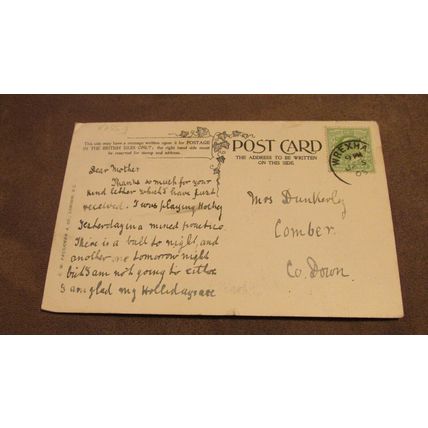 This side may have a message written upon it for POSTAGE
IN THE BRITISH ISLES ONLY; the right hand side must
be reserved for stamp and address.
POST CARD
THE ADDRESS TO BE WRITTEN
ON THIS SIDE
WREXHA
9 PM
Dear Mother
Thanks so much for your
kind letter which I have just
received. I was playing Hockey
Yesterday in a mixed practice
There is a ball to night, and
another, to morrow night
but I am not going to either
I am glad my Hollidays are
Mrs Dunkerly
Comber
Co. Down